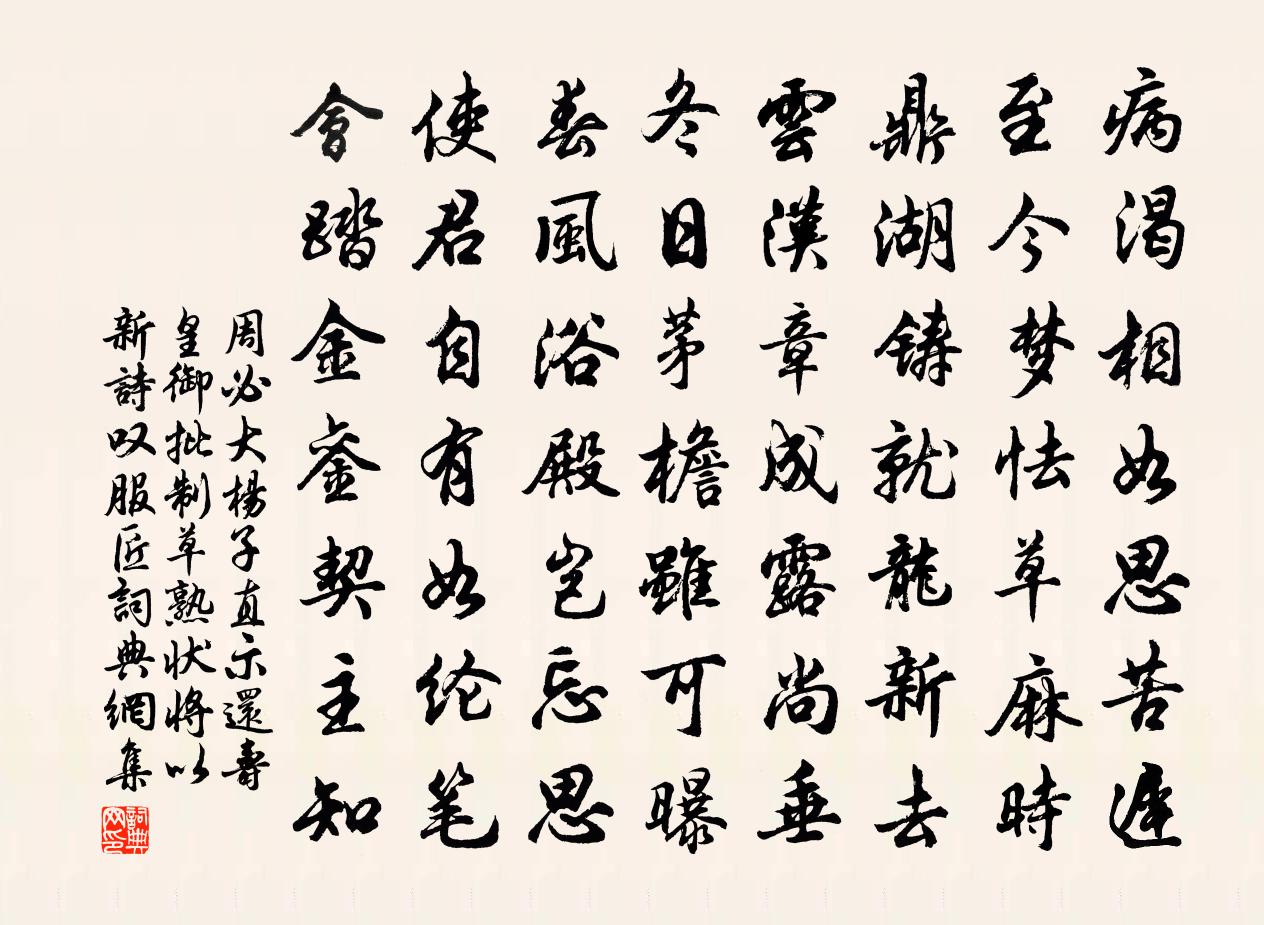 病渴相如思苦遲
至今梦怯草麻時
鼎湖铸就龍新去
雲漢章成露尚垂
冬日茅檐雖可曝
春風浴殿岂忘思
使君自有如纶笔
會踏金銮契主知
周必大楊子直示還壽
皇御批制草熟状將以
新詩叹服匠詞典網集
詞典
网印